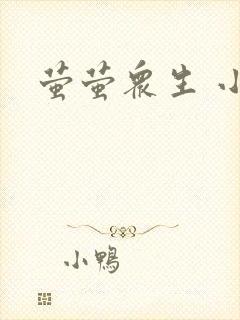 萤萤众生 小
小鸭